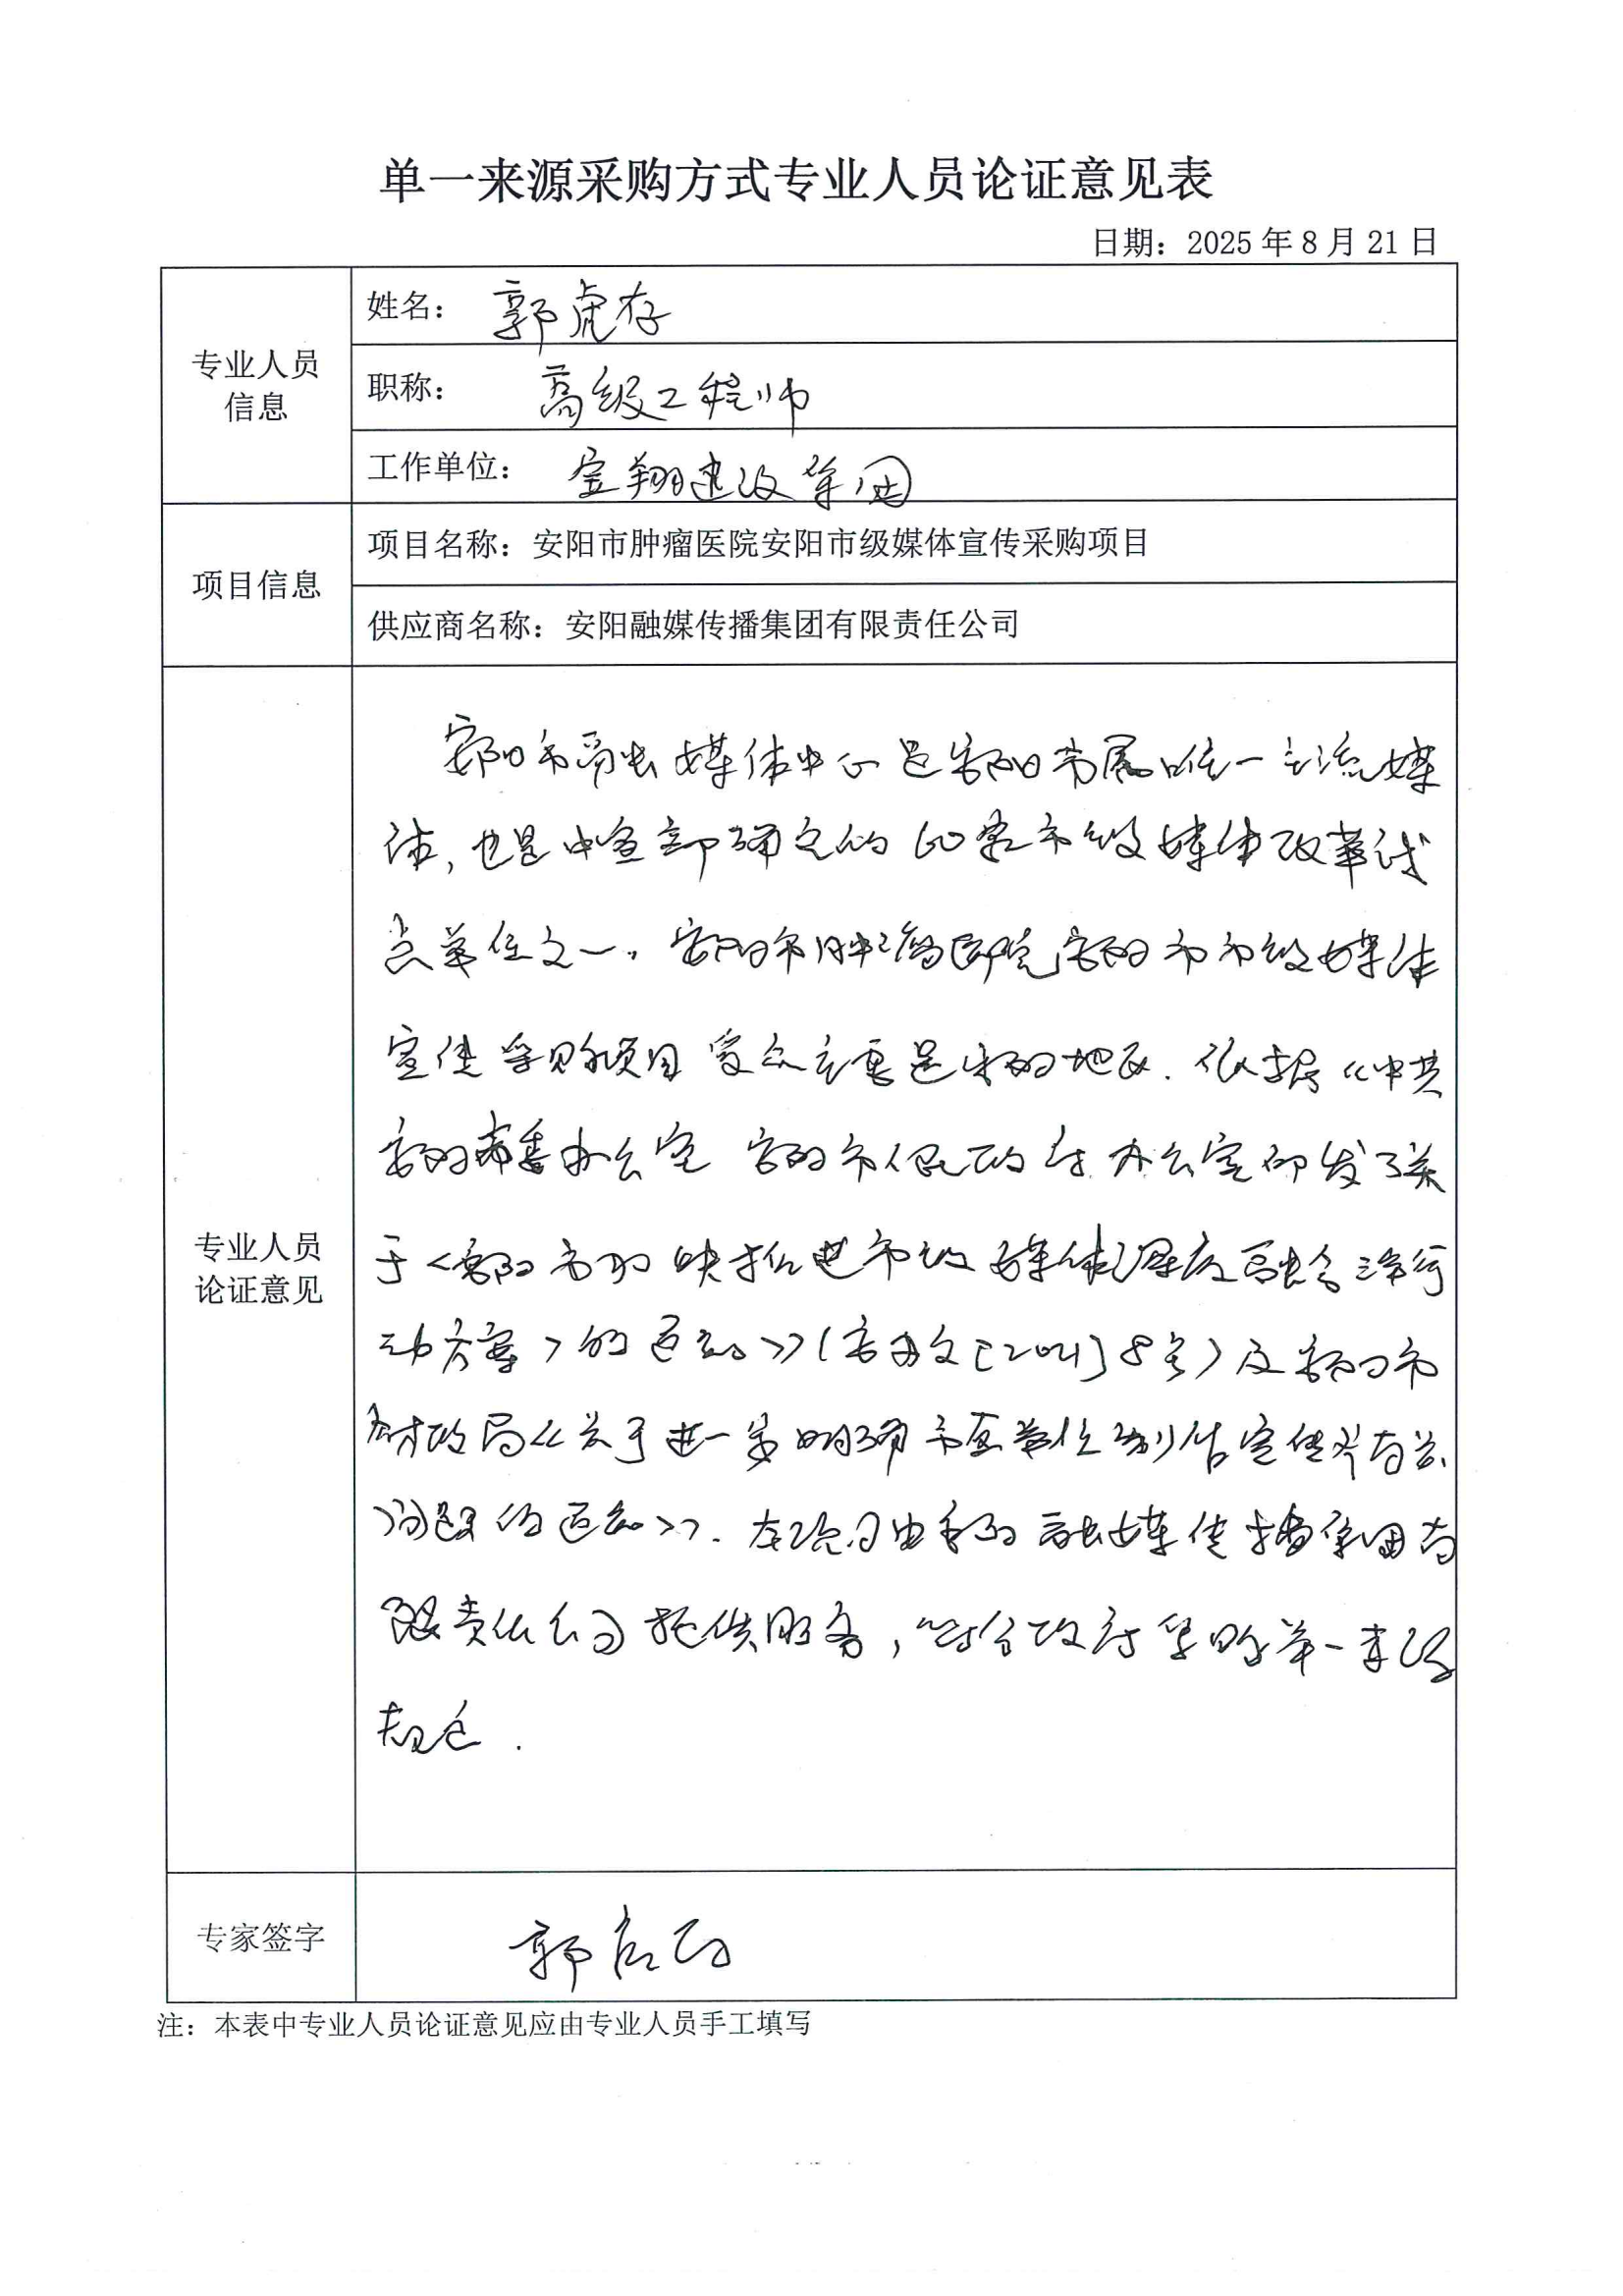 单一来源采购方式专业人员论证意见表
日期：2025年8月21日
专业人员
信息
姓名：郭虎存
职称：高级工程师
工作单位：宝翔建设集团
项目信息
项目名称：安阳市肿瘤医院安阳市级媒体宣传采购项目
供应商名称：安阳融媒传播集团有限责任公司
专业人员
论证意见
安阳市融媒体中心是安阳市属唯一主流媒
体，也是中宣部确定的60家市级媒体改革试
点单位之一。安阳市肿瘤医院安阳市市级媒体
宣传采购项目受众主要是安阳地区.依据《中共
安阳市委办公室 安阳市人民政府办公室印发了关
于<安阳市加快推进市级媒体深度融合三年行
动方案>的通知》(安办文[2021]8号)及安阳市
财政局《关于进一步明确市直单位刊播宣传片有关
问题的通知》.本项目由安阳融媒传播集团有
限责任公司提供服务,符合政府采购单一来源
规定.
专家签字
郭
注：本表中专业人员论证意见应由专业人员手工填写